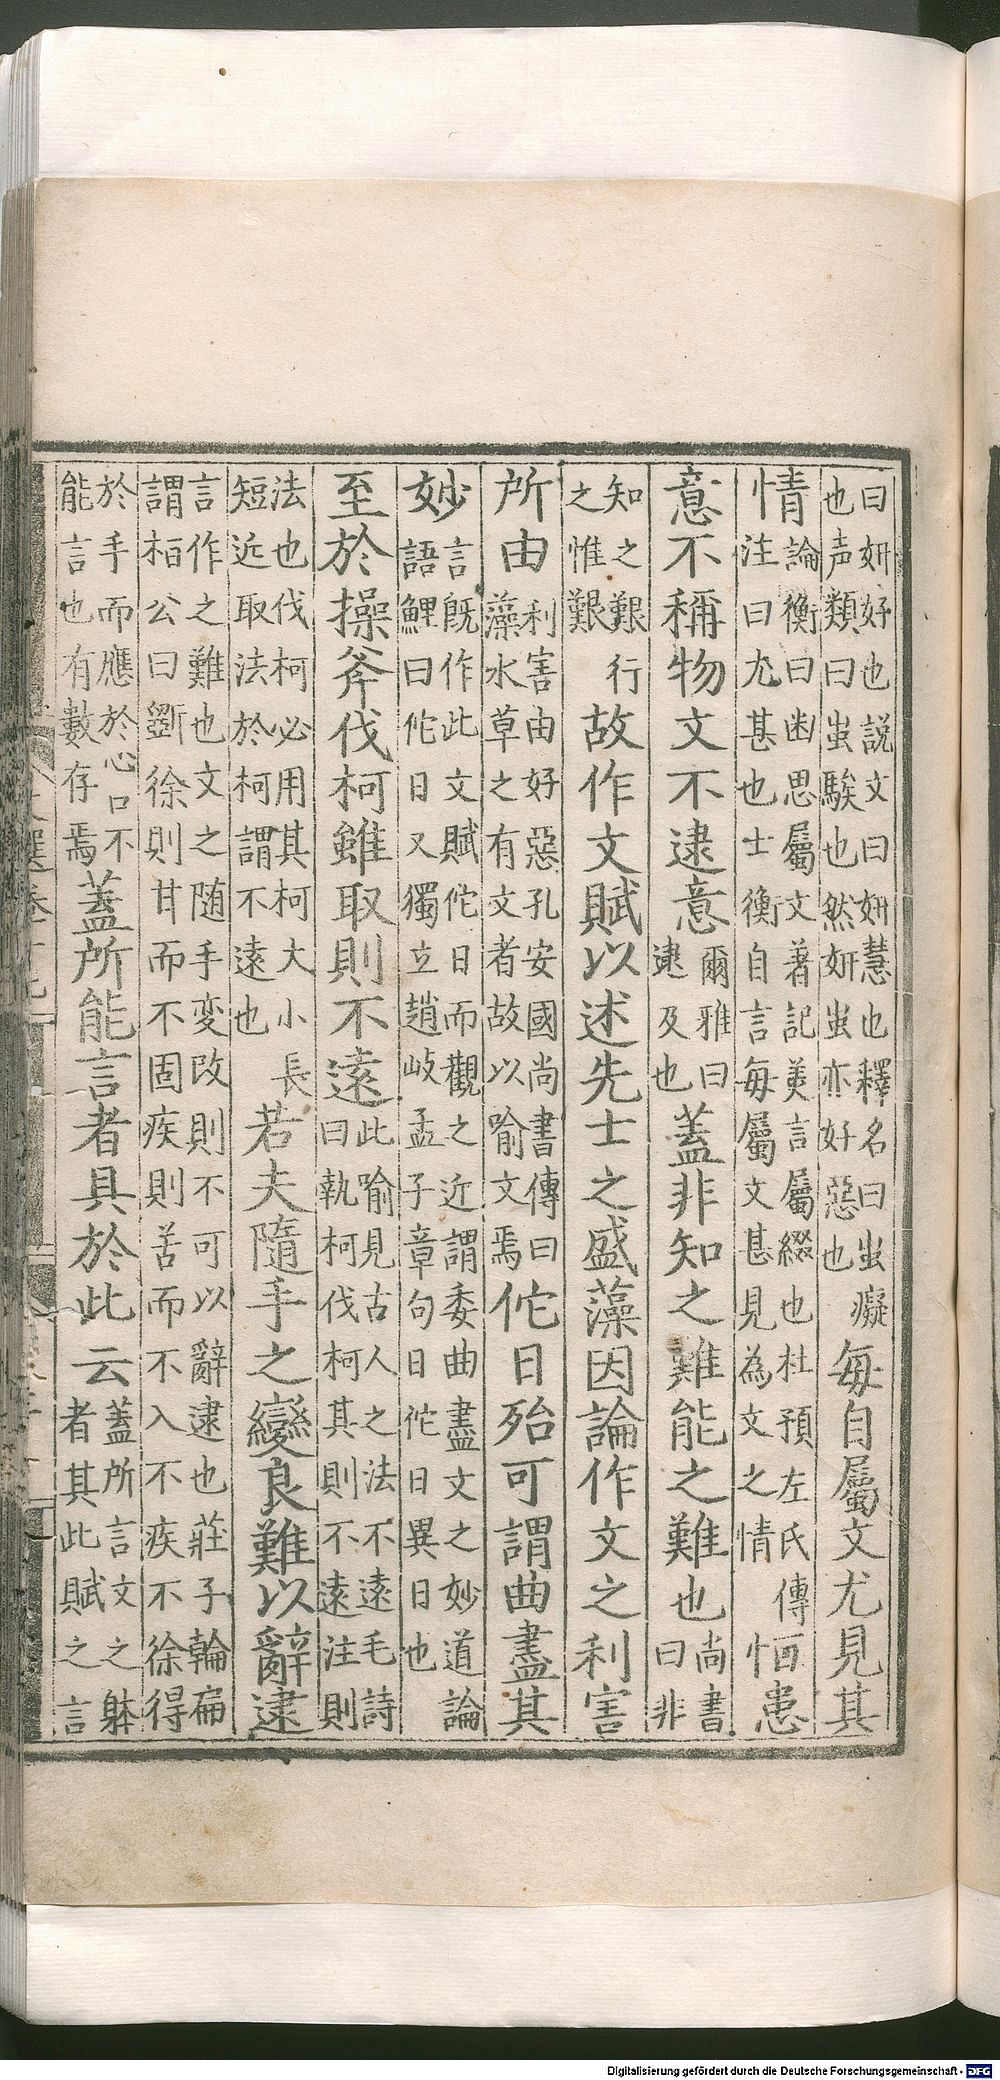 曰妍好也說文曰妍慧也釋名曰蚩癡也声類曰蚩騃也然妍蚩亦好惡也每自屬文尤見其
情論衡曰幽思屬文著記美言屬綴也杜預左氏傳注曰尤甚也士衡自言每屬文甚見為文之情恒患
意不稱物文不逮意爾雅曰逮及也蓋非知之難能之難也尚書曰非
知之艱行之惟艱故作文賦以述先士之盛藻因論作文之利害
所由利害由好惡孔安國尚書傳曰藻水草之有文者故以喻文焉佗日殆可謂曲盡其
妙言旣作此文賦佗日而觀之近謂委曲盡文之妙道論語鯉曰佗日又獨立趙岐孟子章句曰佗日異日也
至於操斧伐柯雖取則不遠此喻見古人之法不遠毛詩曰執柯伐柯其則不遠注則
法也伐柯必用其柯大小長短近取法於柯謂不遠也若夫隨手之變良難以辭逮
言作之難也文之随手変改則不可以辭逮也莊子輪扁謂桓公曰斵徐則甘而不固疾則苦而不入不疾不徐得
於手而應於心口不能言也有數存焉蓋所能言者具於此云蓋所言文之躰者其此賦之言
Digitalisierung gefördert durch die Deutsche Forschungsgemeinschaft - DFG